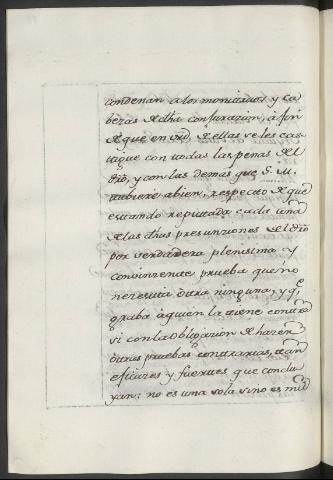 condenàn a los monitàios y ca
bezas de dha conjuracion, a fin
de que en vrd. de ellas se les cas
tigue con todas las penas del
dro, y con las demas que S. M.
tubiere a bien, respecto de que
estando reputada cada una
de las dhas presunziones del dro
por verdadera plenisima y
convinzente prueba que no
nezesita otra ninguna, y qe
graba a quien la tiene contra
si con la obligazion de hazer
otras pruebas contrarias, tan
eficazes y fuertes que conclu
yan: no es una sola sino es mu